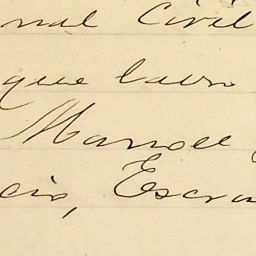 nal Civil
que lavro
Manoel
cio, Escra